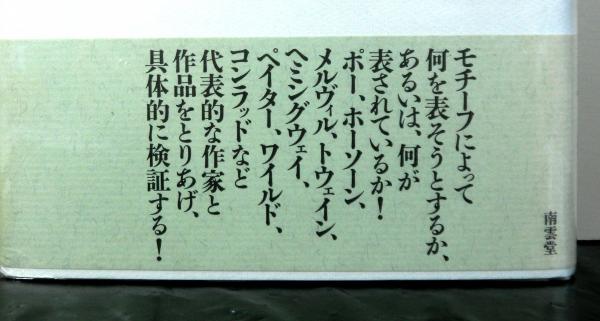 モチーフによって
何を表そうとするか、
あるいは、何が
表されているか！
ポー、ホーソーン、
メルヴィル、トウェイン、
ヘミングウェイ、
ペイター、ワイルド、
コンラッドなど
代表的な作家と
作品をとりあげ、
具体的に検証する！
南雲堂